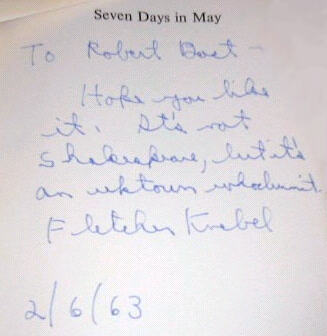 Seven Days in May
To Robert Bost –
Hope you like
it. It's not
Shakespeare, but it's
an uptown whodunit.
Fletcher Knebel
2/6/63